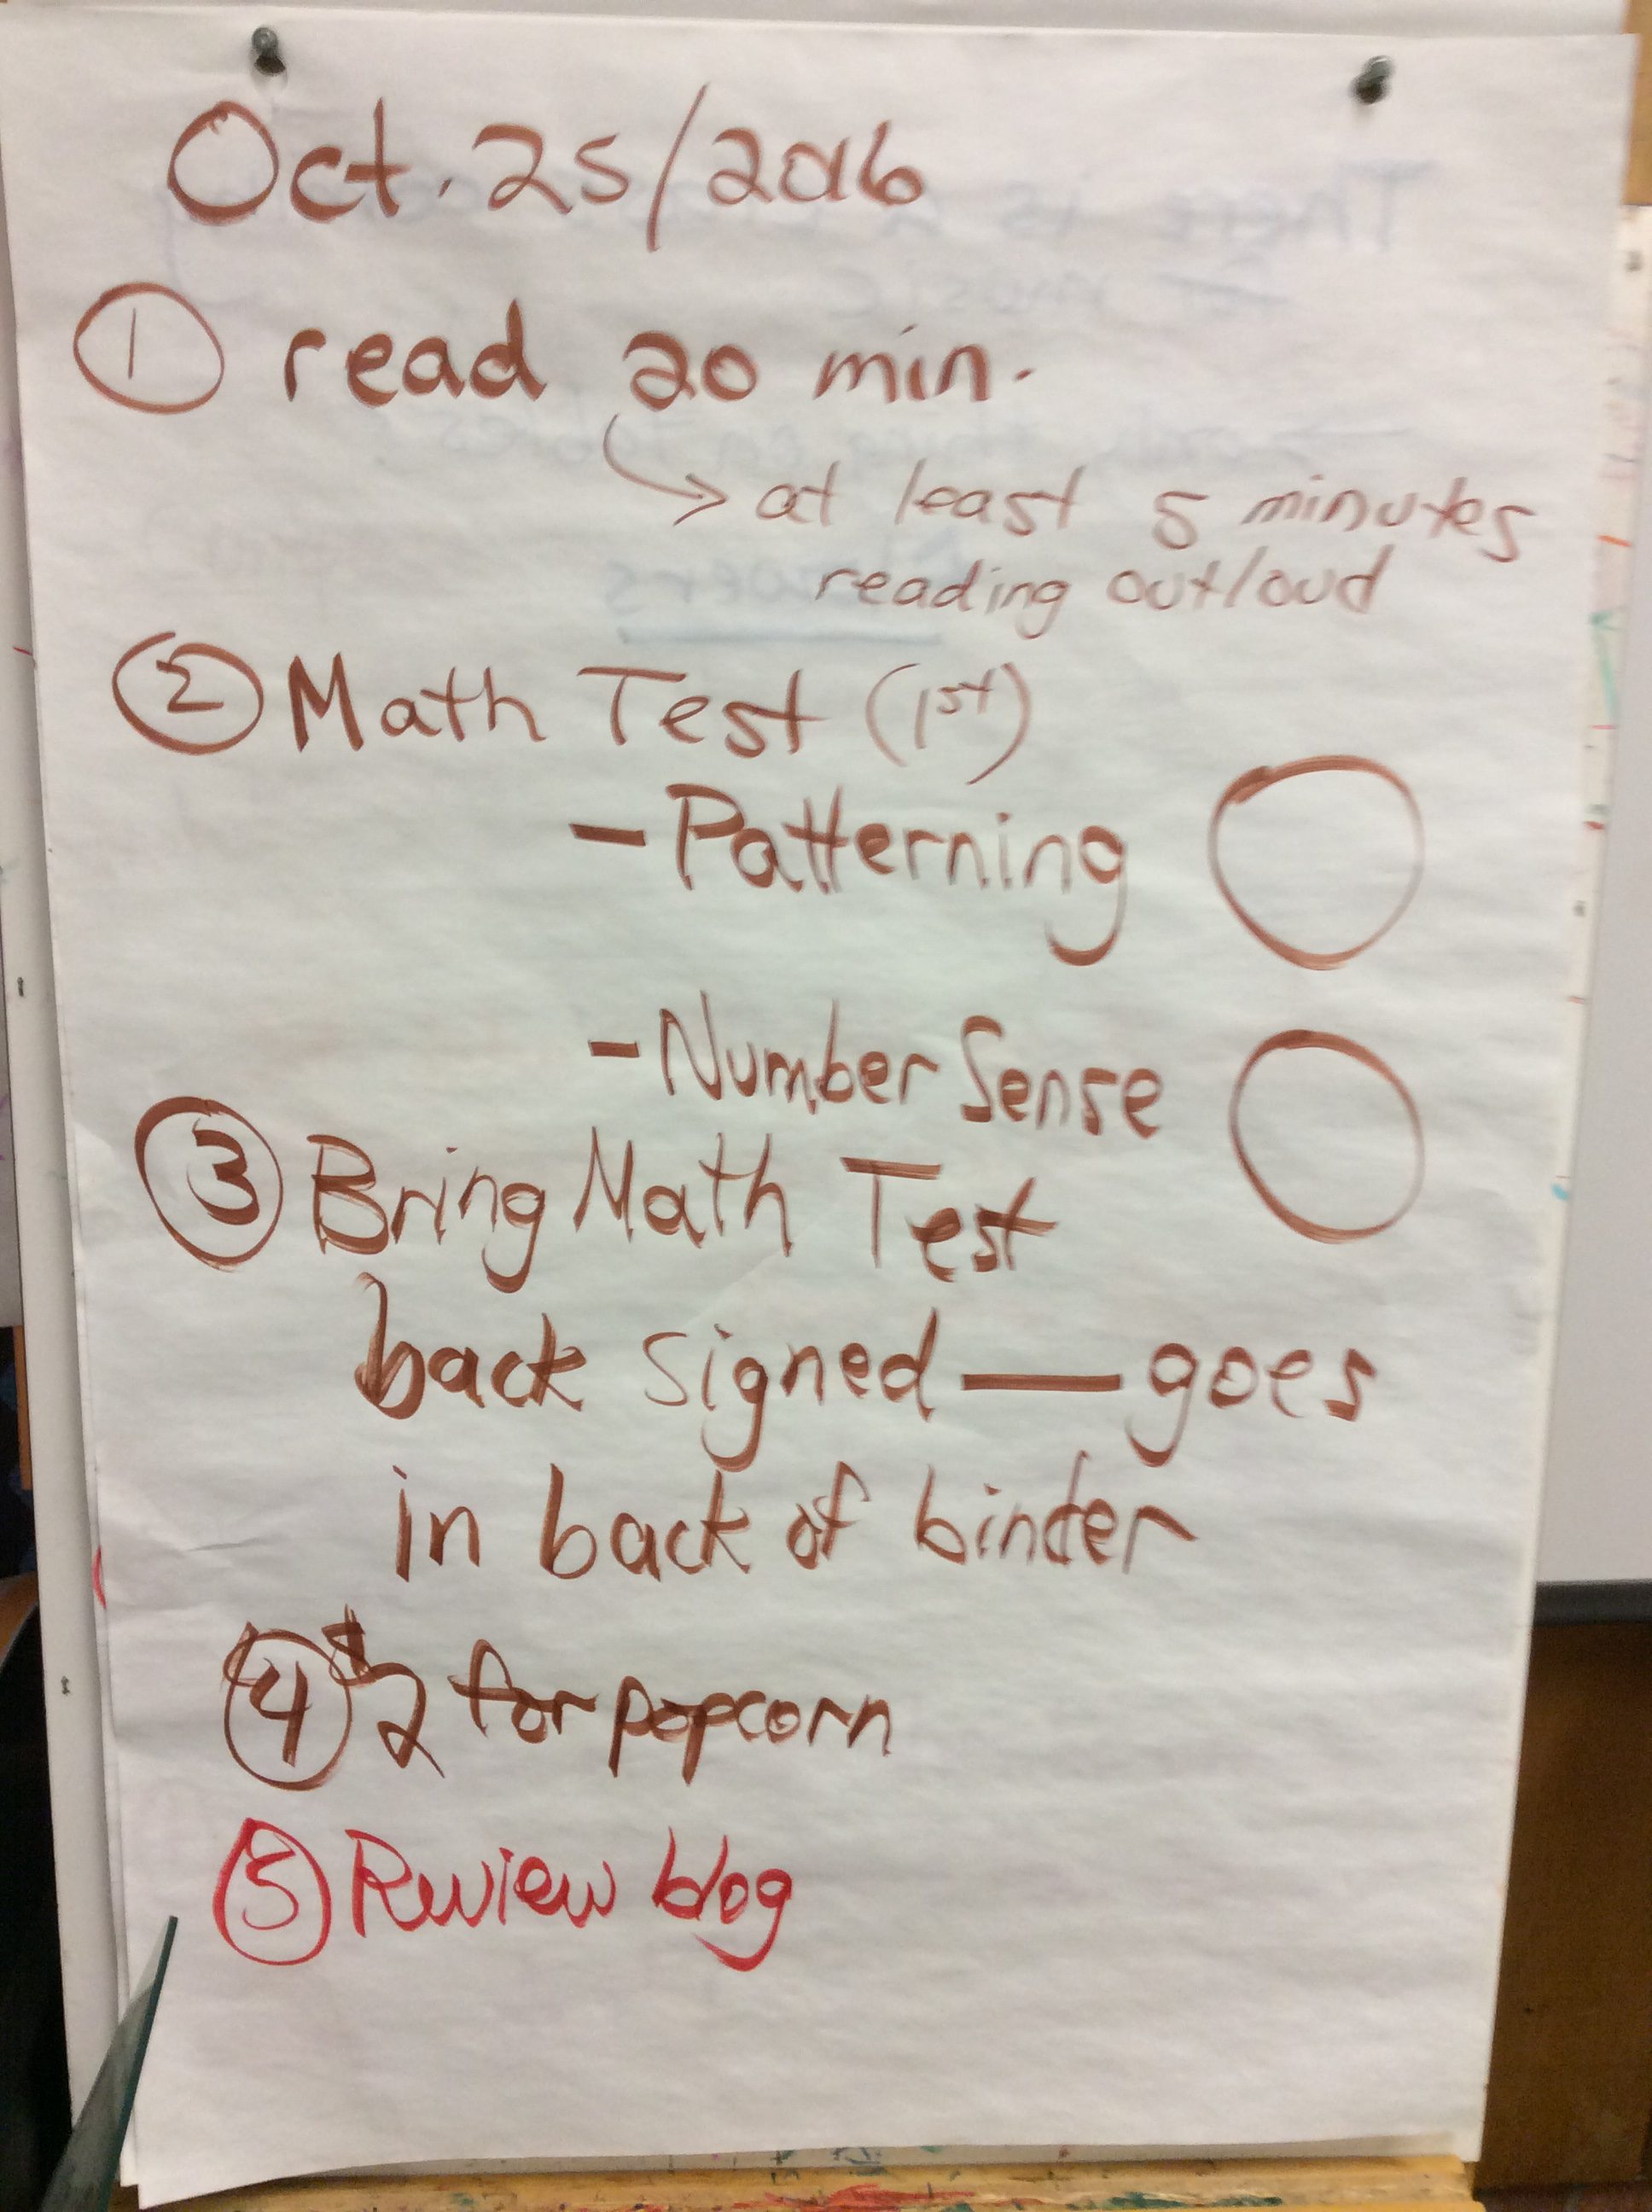 Oct. 25/2016
① read 20 min.
→ at least 5 minutes
reading outloud
② Math Test (1st)
- Patterning
- Number Sense
③ Bring Math Test
back signed — goes
in back of binder
④ $2 for popcorn
⑤ Review blog